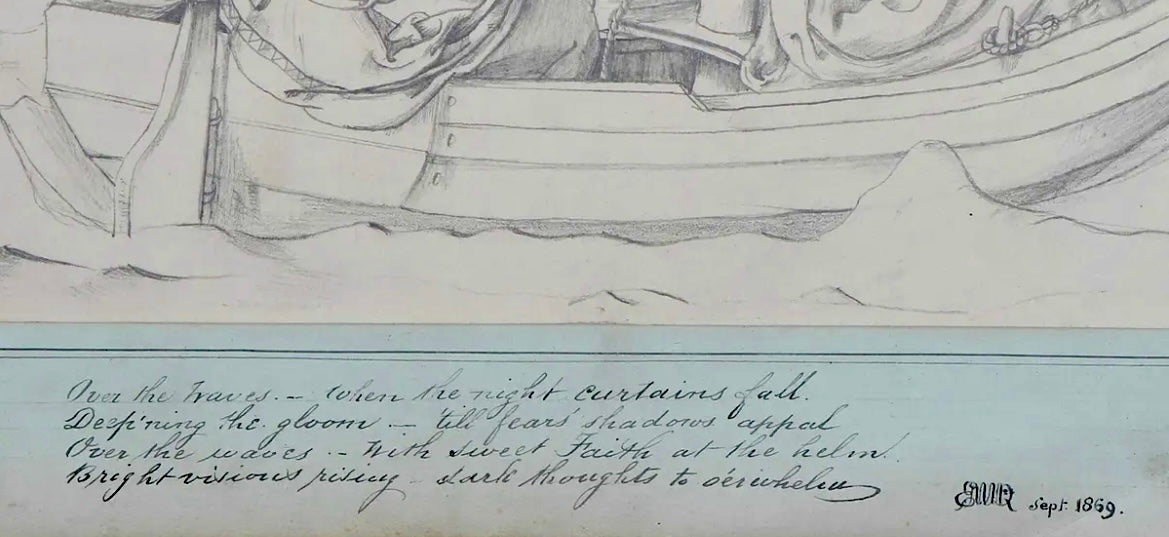 Over the Waves. – When the night curtains fall.
Deep'ning the gloom – 'till fears' shadows appal
Over the waves. – With sweet Faith at the helm.
Bright visions rising – dark thoughts to o'erwhelm
Sept. 1869.